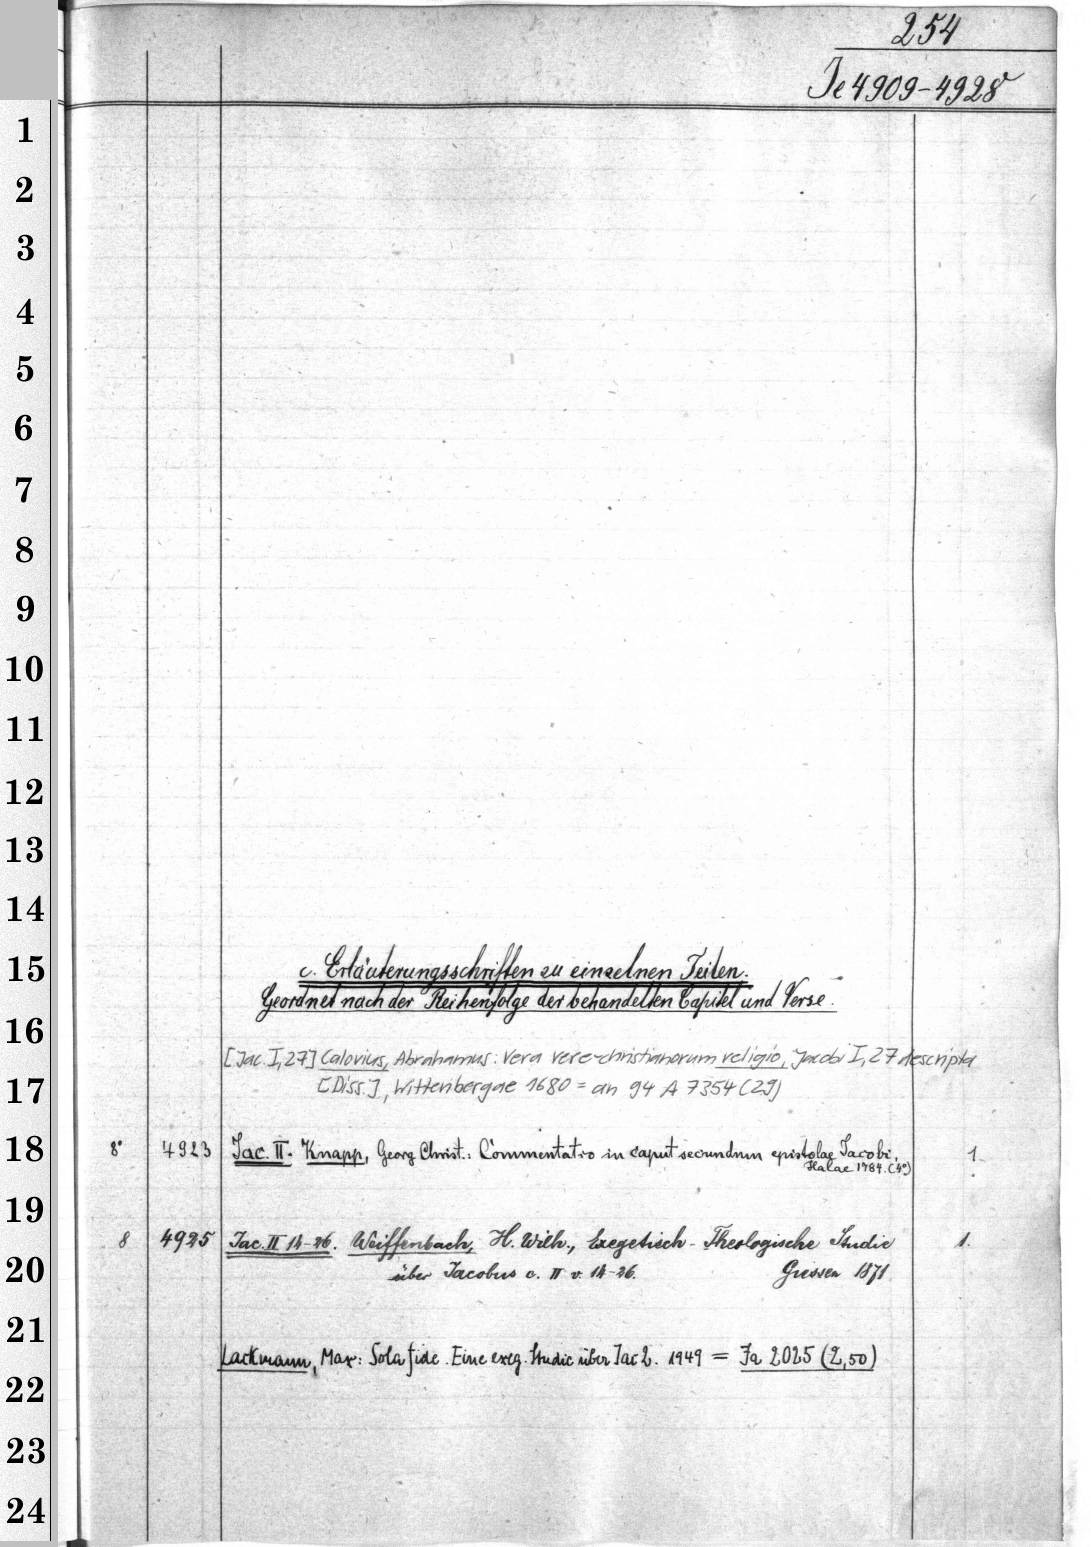 254
Je 4909-4928
1
2
3
4
5
6
7
8
9
10
11
12
13
14
15
16
17
18
19
20
21
22
23
24
c. Erläuterungsschriften zu einzelnen Teilen.
Geordnet nach der Reihenfolge der behandelten Capitel und Verse.
[Jac. I, 27] Calovius, Abrahamus: Vera vere-christianorum religio, Jacobi I, 27 descripta
[Diss.], Wittenbergae 1680 = an 94 A 7354 (29)
8° 4923 Jac. II. Knapp, Georg Christ.: Commentatio in caput secundum epistolae Jacobi, 1.
Halae 1784. (4°)
8 4925 Jac. II 14-26. Weiffenbach, H. Wilh., Exegetisch-Theologische Studie 1.
über Jacobus c. II v. 14-26. Giessen 1871
Lackmann, Max: Sola fide. Eine exeg. Studie über Jac 2. 1949 = Ja 2025 (2,50)